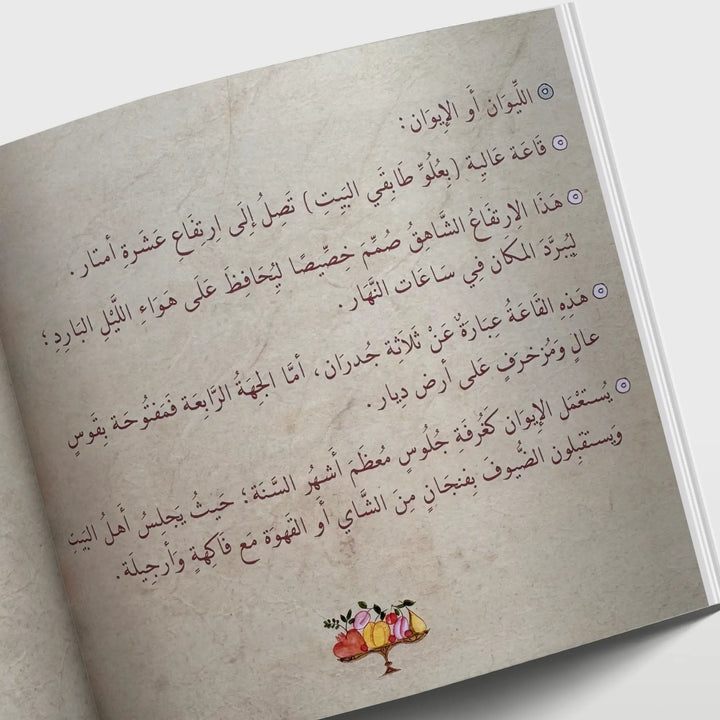 اللِّيوَان أَو الإِيوَان:
قَاعَة عَالِية (بِعُلُوِّ طَابِقَي البَيِتِ) تَصِلُ إلَى اِرتِفَاع عَشَرةِ أمتَار.
هَذَا الِارتِفَاعُ الشَّاهِقُ صُمِّمَ خِصِّيصًا لِيُحَافِظَ عَلَى هَوَاءِ اللَّيْلِ البَارِدِ؛
لِيُبرِّدَ المكَان فِي سَاعَات النَّهَار.
هَذِهِ القَاعَةُ عِبَارَةٌ عَنْ ثَلَاثَة جُدرَان، أمَّا الجِهَةُ الرَّابِعَة فَمَفتُوحَة بِقَوسٍ
عالٍ ومُزخرَفٍ عَلى أرض ديار.
يُستَعْمَل الإيوَان كَغُرفَةِ جُلُوسٍ مُعظَمَ أشهُرِ السَّنَة؛ حَيثُ يَجلِسُ أهلُ البَيتِ
وَيستقبِلون الضُّيوفَ بِفنجَانٍ مِنَ الشَّاي أو القَهوَة مَع فَاكِهةٍ وَأرجِيلَة.